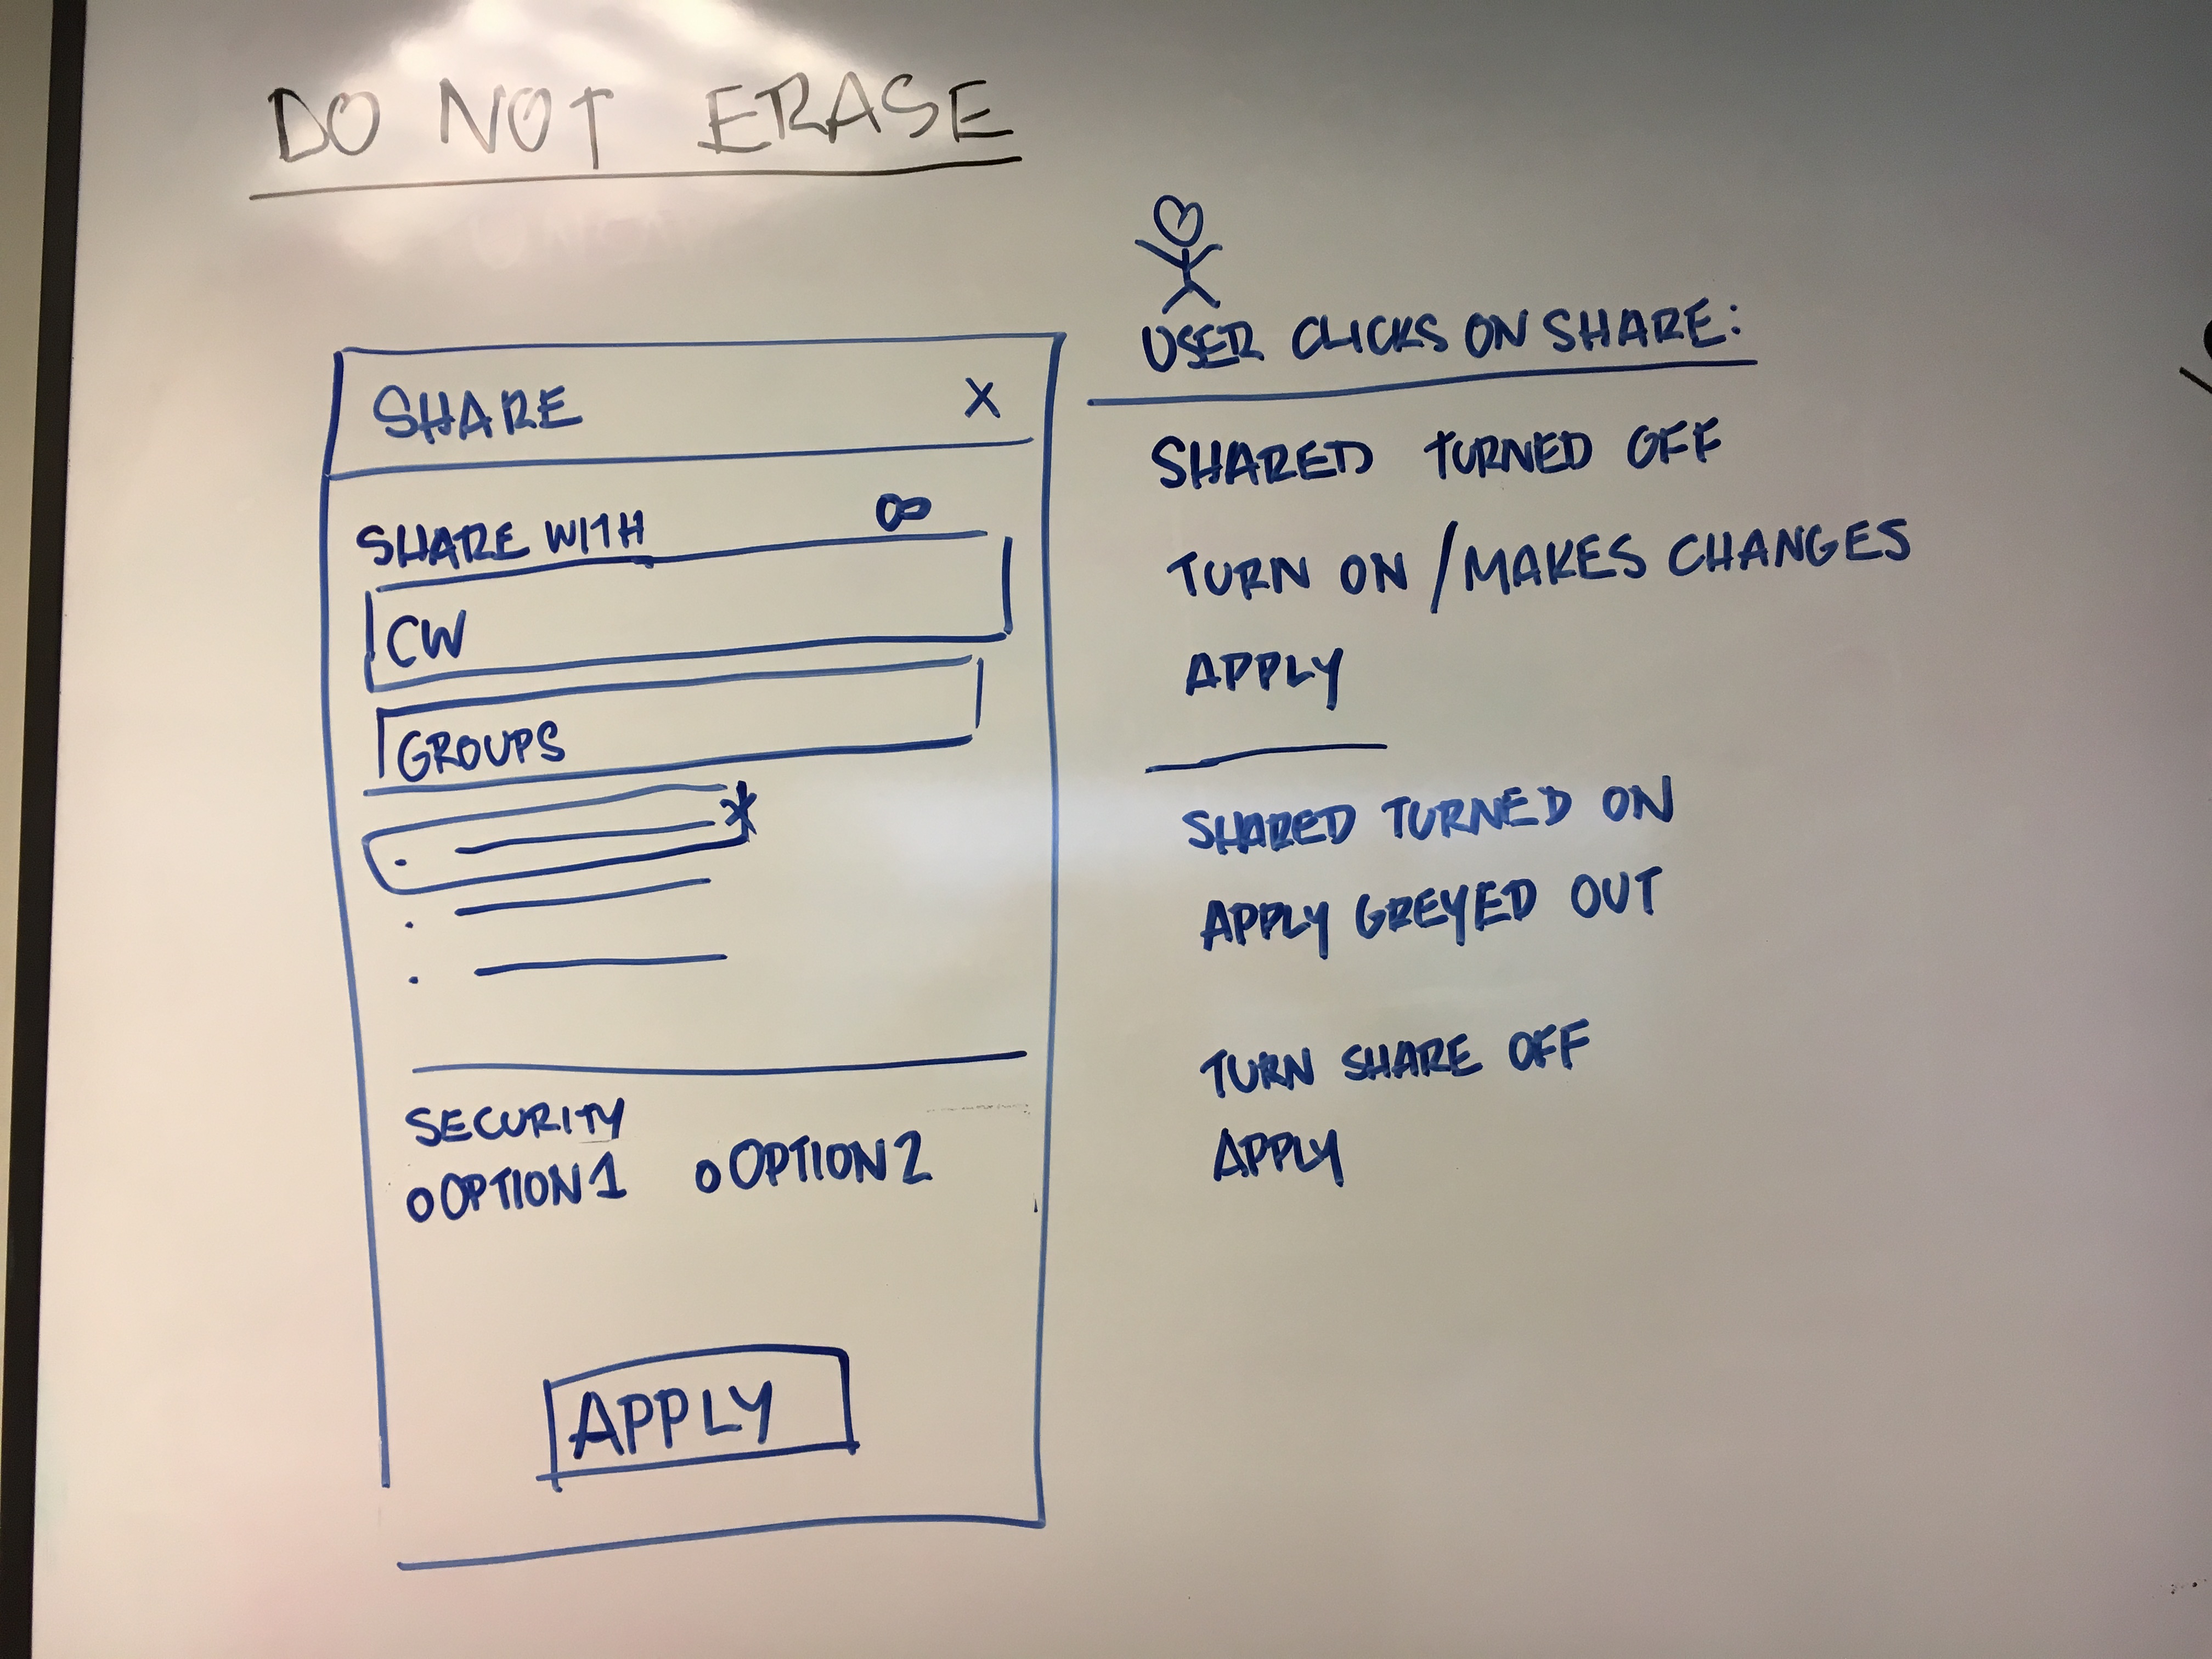 DO NOT ERASE
SHARE X
SHARE WITH
CW
GROUPS
SECURITY
OPTION 1 OPTION 2
APPLY
USER CLICKS ON SHARE:
SHARED TURNED OFF
TURN ON / MAKES CHANGES
APPLY
SHARED TURNED ON
APPLY GREYED OUT
TURN SHARE OFF
APPLY